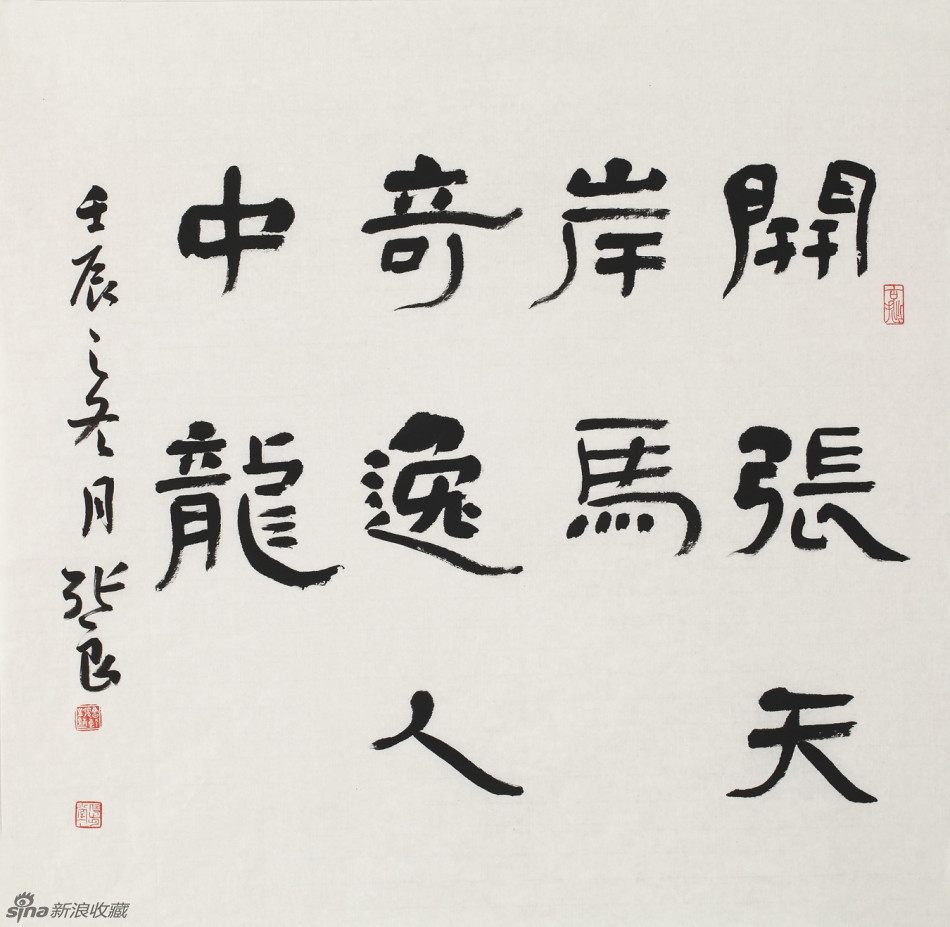 開張天
岸馬
奇逸人
中龍
壬辰之冬月
sina新浪收藏